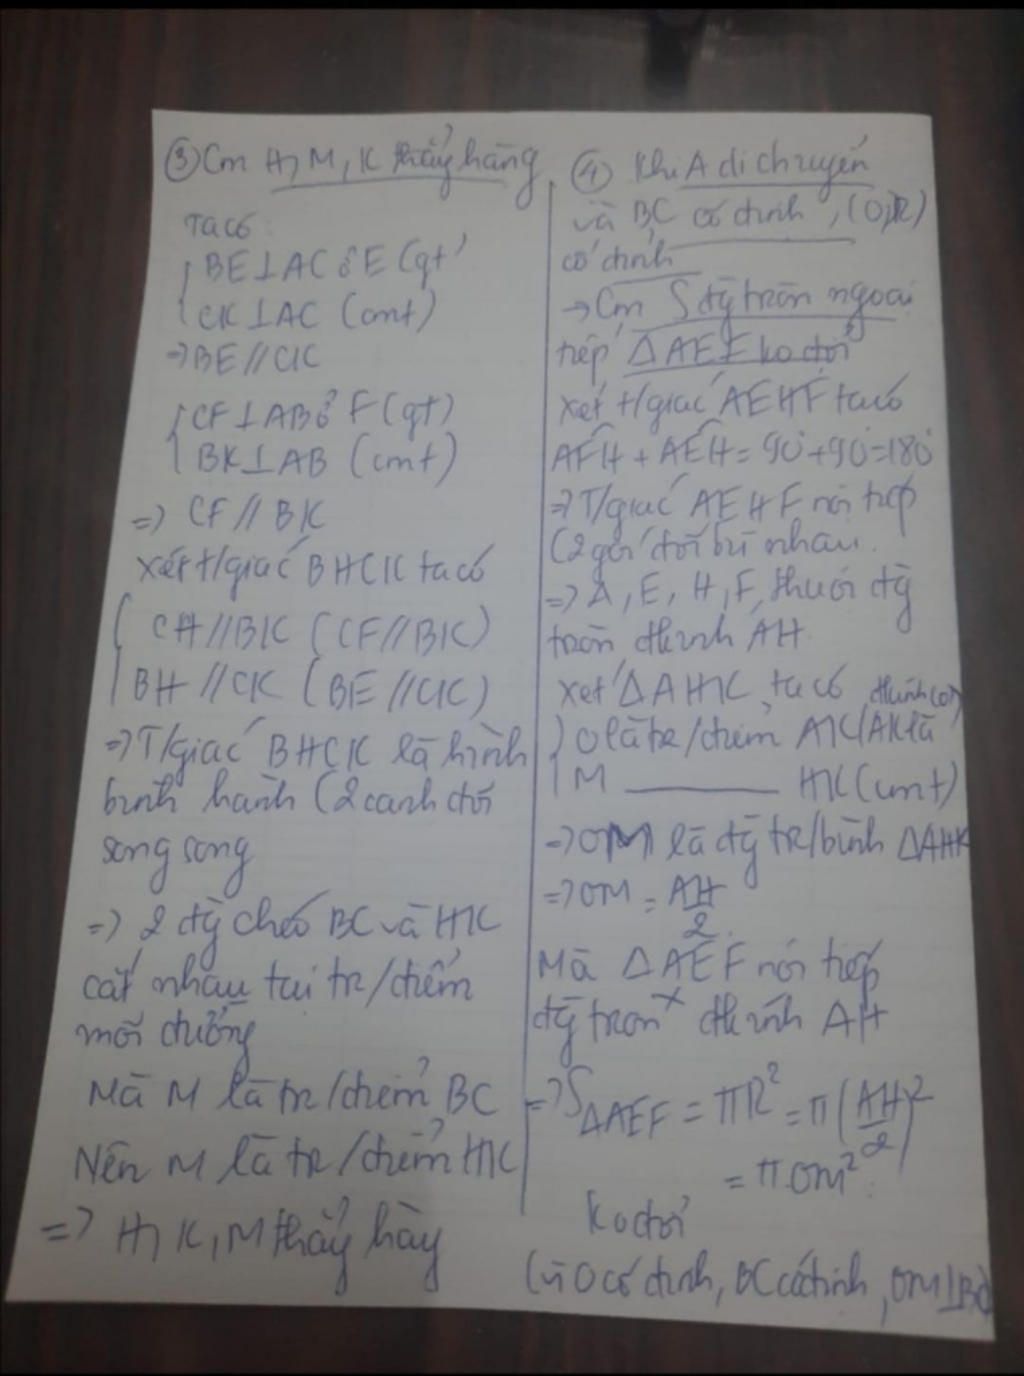 ③ Cm H, M, K thẳng hàng
Ta có:
BE⊥AC ở E (gt)
CK⊥AC (cmt)
⇒ BE // CK
CF⊥AB ở F (gt)
BK⊥AB (cmt)
⇒ CF // BK
Xét t/giác BHCK ta có
CH // BK (CF // BK)
BH // CK (BE // CK)
⇒ T/giác BHCK là hình
bình hành (2 cạnh đối
song song
⇒ 2 đg chéo BC và HK
cắt nhau tại tr/điểm
mỗi đường
Mà M là tr/điểm BC
Nên M là tr/điểm HK
⇒ H, K, M thẳg hàg
④ Khi A di chuyển
và BC cố định, (O;R)
cố định
→ Cm S đg tròn ngoại
tiếp ΔAEF ko đổi
Xét t/giác AEHF ta có
AFH + AEH = 90° + 90° = 180°
⇒ T/giác AEHF nội tiếp
(2 góc đối bù nhau.
⇒ A, E, H, F, thuộc đg
tròn đkính AH
Xét ΔAHK, ta có
O là tr/điểm AK (AK là đkính (O))
M ———— HK (cmt)
⇒ OM là đg tr/bình ΔAHK
⇒ OM = AH/2
Mà ΔAEF nội tiếp
đg tròn đkính AH
⇒ SΔAEF = πR² = π(AH/2)²
= πOM²
ko đổi
(vì O cố định, BC cố định, OM⊥BC)